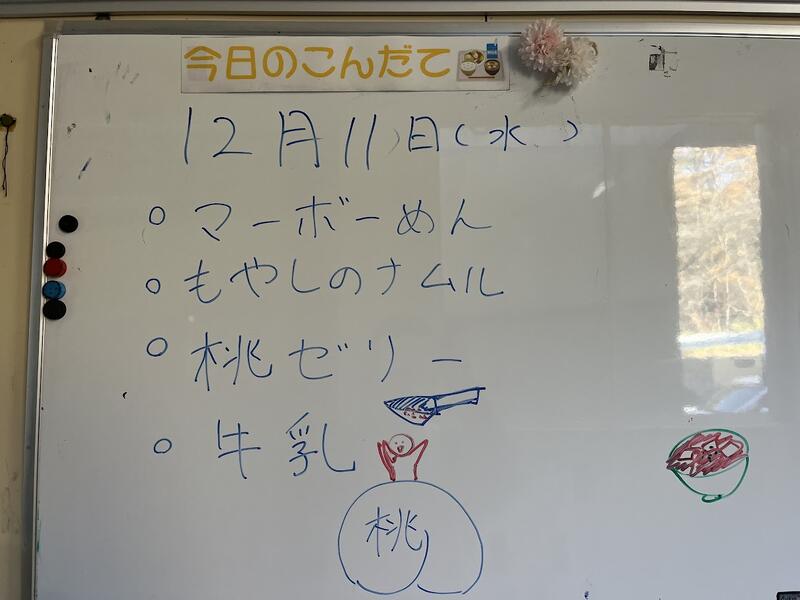 今日のこんだて
12月11日(水)
○ マーボーめん
○ もやしのナムル
○ 桃ゼリー
○ 牛乳
桃